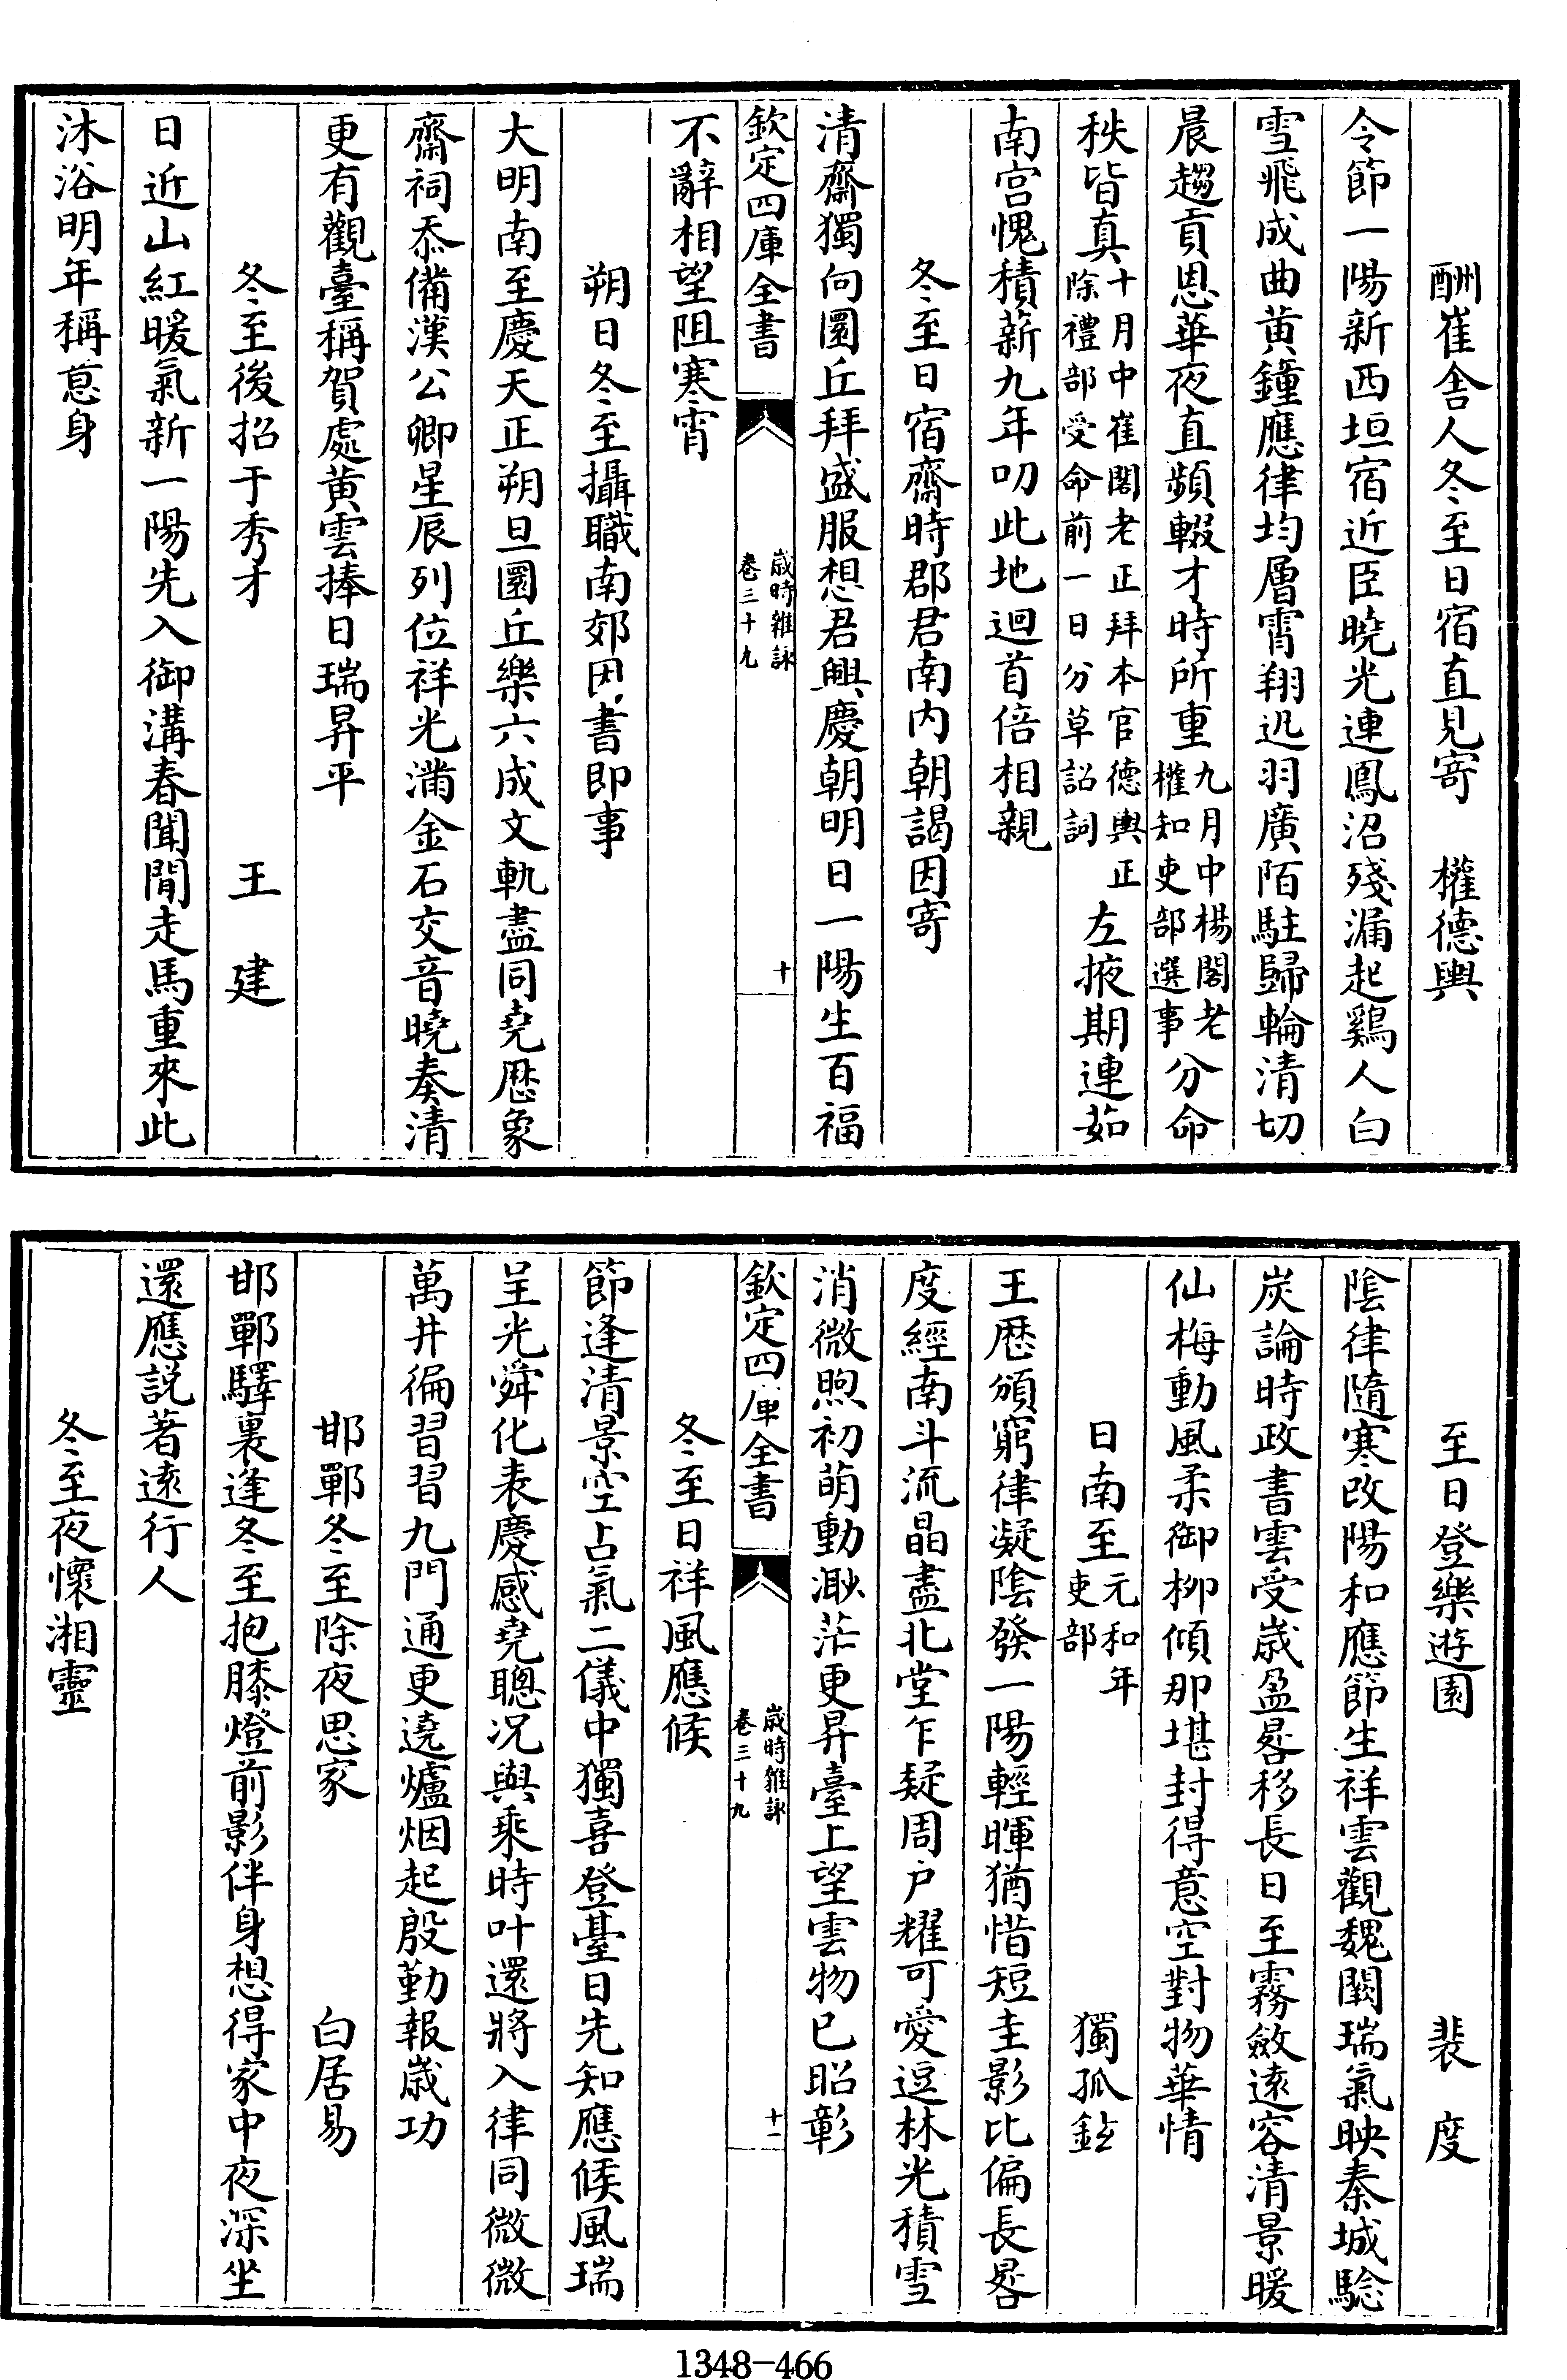 酬崔舎人冬至日宿直見寄 權德輿
令節一陽新西垣宿近臣曉光連鳳沼殘漏起鷄人白
雪飛成曲黄鐘應律均層霄翔迅羽廣陌駐歸輪清切
晨趨貢恩華夜直頻輟才時所重九月中楊閣老權知吏部選事分命
秩皆真十月中崔閣老正拜本官德輿正除禮部受命前一日分草詔詞左掖期連茹
南宫愧積薪九年叨此地迴首倍相親
冬至日宿齋時郡君南内朝謁因寄
清齋獨向圜丘拜盛服想君興慶朝明日一陽生百福
欽定四庫全書 歲時雜詠卷三十九 十
不辭相望阻寒宵
朔日冬至攝職南郊因書即事
大明南至慶天正朔旦圜丘樂六成文軌盡同堯厯象
齋祠忝備漢公卿星辰列位祥光滿金石交音曉奏清
更有觀臺稱賀處黄雲捧日瑞昇平
冬至後招于秀才 王建
日近山紅暖氣新一陽先入御溝春聞閒走馬重來此
沐浴明年稱意身
至日登樂遊園 裴度
陰律隨寒改陽和應節生祥雲觀魏闕瑞氣映秦城驗
炭論時政書雲受歲盈晷移長日至霧斂遠容清景暖
仙梅動風柔御柳傾那堪封得意空對物華情
日南至元和年吏部 獨孤鉉
王厯頒窮律凝陰發一陽輕暉猶惜短圭影比偏長晷
度經南斗流晶盡北堂乍疑周户耀可愛逗林光積雪
消微煦初萌動渺茫更昇臺上望雲物已昭彰
欽定四庫全書 歲時雜詠卷三十九 十一
冬至日祥風應候
節逢清景空占氣二儀中獨喜登臺日先知應候風瑞
呈光舜化表慶感堯聰况與乘時叶還將入律同微微
萬井徧習習九門通更遶爐烟起殷勤報歲功
邯鄲冬至除夜思家 白居易
邯鄲驛裏逢冬至抱膝燈前影伴身想得家中夜深坐
還應説著遠行人
冬至夜懷湘靈
1348-466